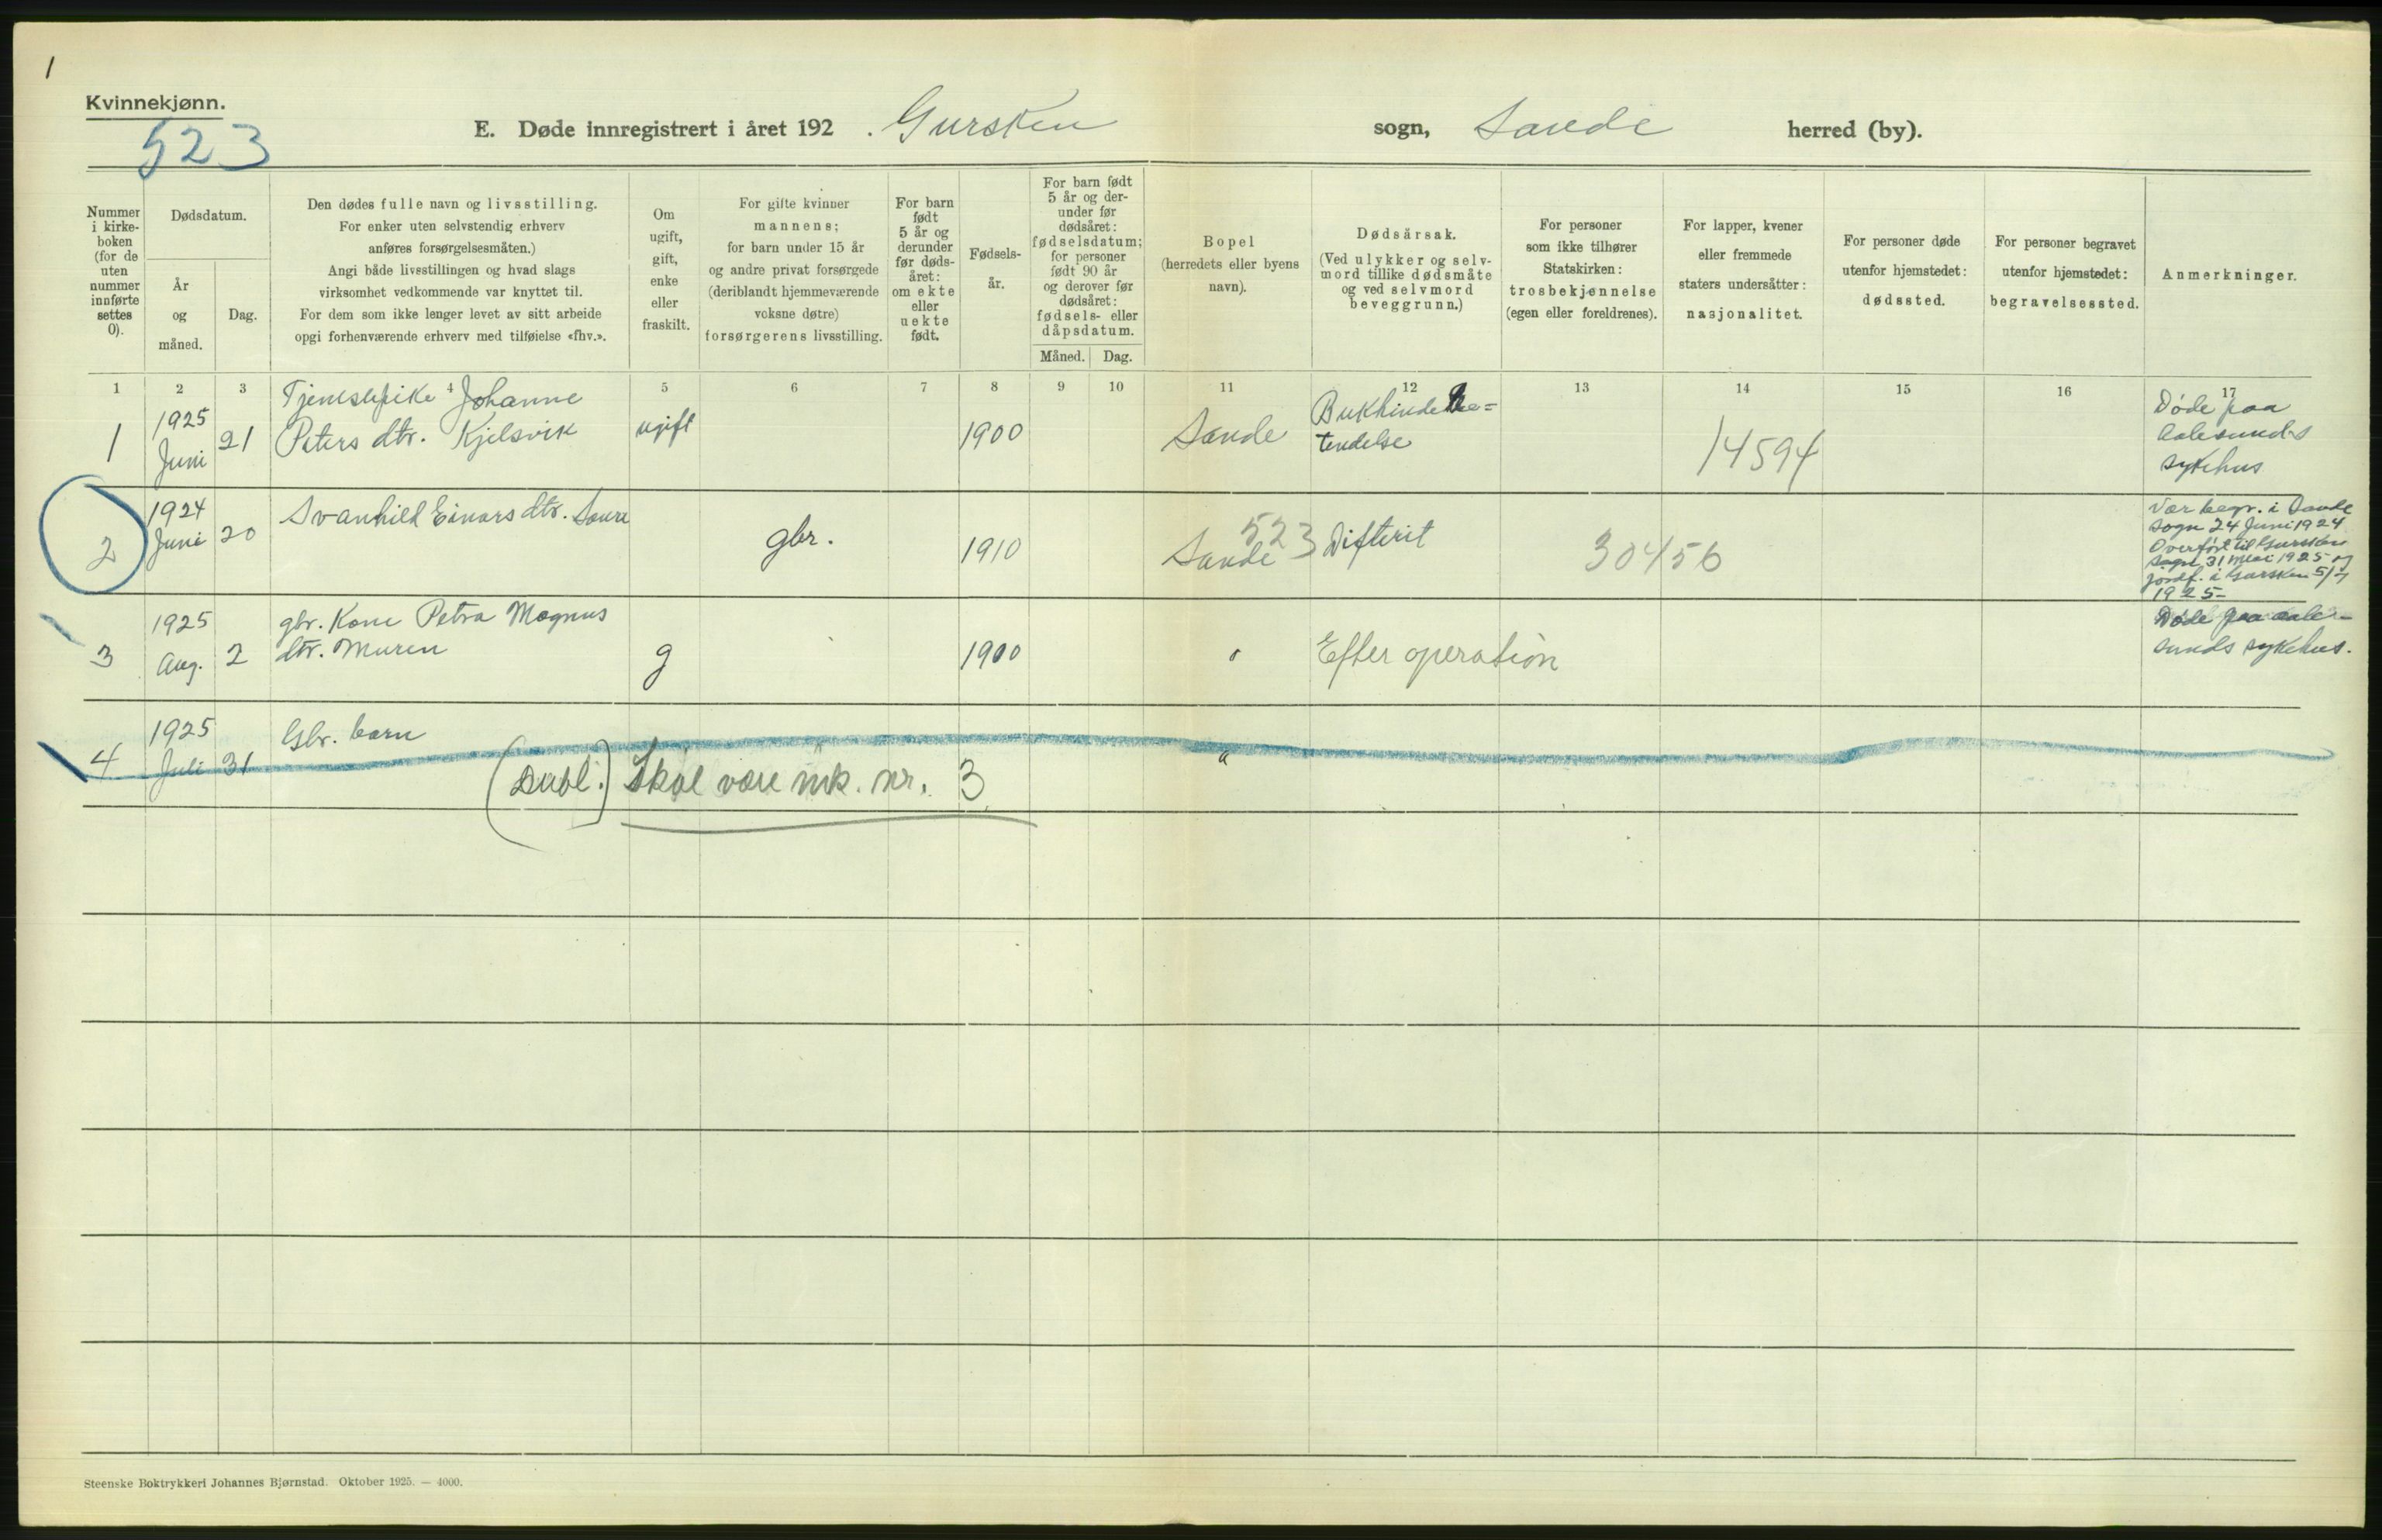 1
Kvinnekjønn.
523
E. Døde innregistrert i året 192 . Gursken sogn, Sande herred (by).
Nummer
i kirke-
boken
(for de
uten
nummer
innførte
settes
0).
Dødsdatum.
År
og
måned.
Dag.
Den dødes fulle navn og livsstilling.
For enker uten selvstendig erhverv
anføres forsørgelsesmåten.)
Angi både livsstillingen og hvad slags
virksomhet vedkommende var knyttet til.
For dem som ikke lenger levet av sitt arbeide
opgi forhenværende erhverv med tilføielse «fhv.».
Om
ugift,
gift,
enke
eller
fraskilt.
For gifte kvinner
mannens;
for barn under 15 år
og andre privat forsørgede
(deriblandt hjemmeværende
voksne døtre)
forsørgerens livsstilling.
For barn
født
5 år og
derunder
før døds-
året:
om ekte
eller
uekte
født.
Fødsels-
år.
For barn født
5 år og der-
under før
dødsåret:
fødselsdatum;
for personer
født 90 år
og derover før
dødsåret:
fødsels- eller
dåpsdatum.
Måned. Dag.
Bopel
(herredets eller byens
navn).
Dødsårsak.
(Ved ulykker og selv-
mord tillike dødsmåte
og ved selvmord
beveggrunn.)
For personer
som ikke tilhører
Statskirken:
trosbekjennelse
(egen eller foreldrenes).
For lapper, kvener
eller fremmede
staters undersåtter:
nasjonalitet.
For personer døde
utenfor hjemstedet:
dødssted.
For personer begravet
utenfor hjemstedet:
begravelsessted.
Anmerkninger.
1 2 3 4 5 6 7 8 9 10 11 12 13 14 15 16 17
1
1925
Juni
21
Tjenestepike Johanne
Peters dtr. Kjelsvik
ugift
1900
Sande
Bukhindebe=
tendelse
14594
Døde paa
Aalesunds
sykehus
2
1924
Juni
20
Svanhild Einars dtr. Saure
gbr.
1910
523
Sande
Difterit
30456
Var begr. i Sande
sogn 24 Juni 1924
Overført til Gursken
sogn 31 Mai 1925 og
jordf. i Gursken 5/7
1925-
3
1925
Aug.
2
gbr. Kone Petra Magnus
dtr. Muren
g
1900
"
Efter operation
Døde paa aale-
sunds sykehus.
4
1925
Juli
31
Gbr. barn
"
"
(Dubl.) Skal være mk. nr. 3
Steenske Boktrykkeri Johannes Bjørnstad. Oktober 1925. — 4000.